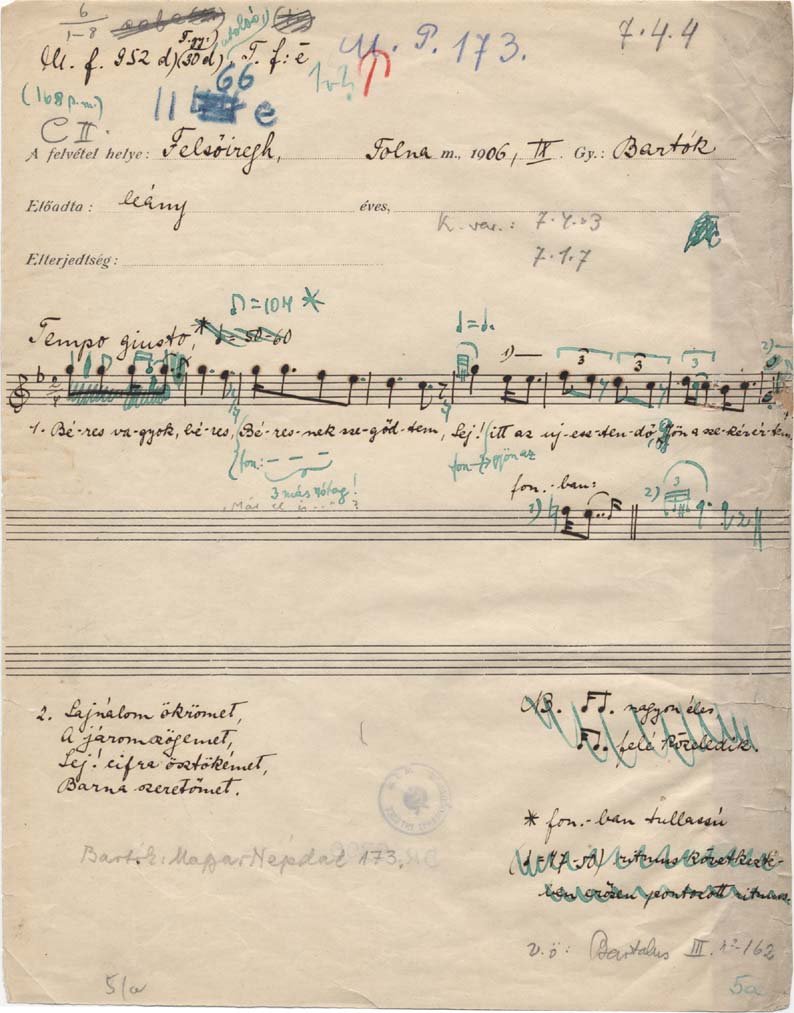 6
1-8
7.4.4
M. f. 952 d) (T. gy. 30 d) utolsó, T. f: ē
M. P. 173.
66
(168 p.m.)
11 e
C II.
A felvétel helye: Felsőiregh, Tolna m., 1906, IX. Gy.: Bartók
Előadta: leány éves,
K. var.: 7.4.3
7.1.7
Elterjedtség:
♪=104 *
Tempo giusto, * ♩= 50-60
♩=♩.
1) 3 3 3 2)
1. Bé-res va-gyok, bé-res, Bé-res-nek sze-gőd-tem, Sej! itt az uj-esz-ten-dő, Jön a sze-kér ér-tem.
fon: – – –
fon
jön az
3 más nótag!
Már el is ... ?
fon.-ban:
1) 2) 3
2. Sajnálom ökrömet,
A járomszögemet,
Sej! cifra ösztökémet,
Barna szeretőmet.
NB. nagyon éles
felé közeledik.
* fon.-ban tullassú
(♩=47-50) ritmus következté-
ben erősen pontozott ritmus.
Bartók: Magyar Népdal 173.
v.ö: Bartalus III. 162
5/a
5a